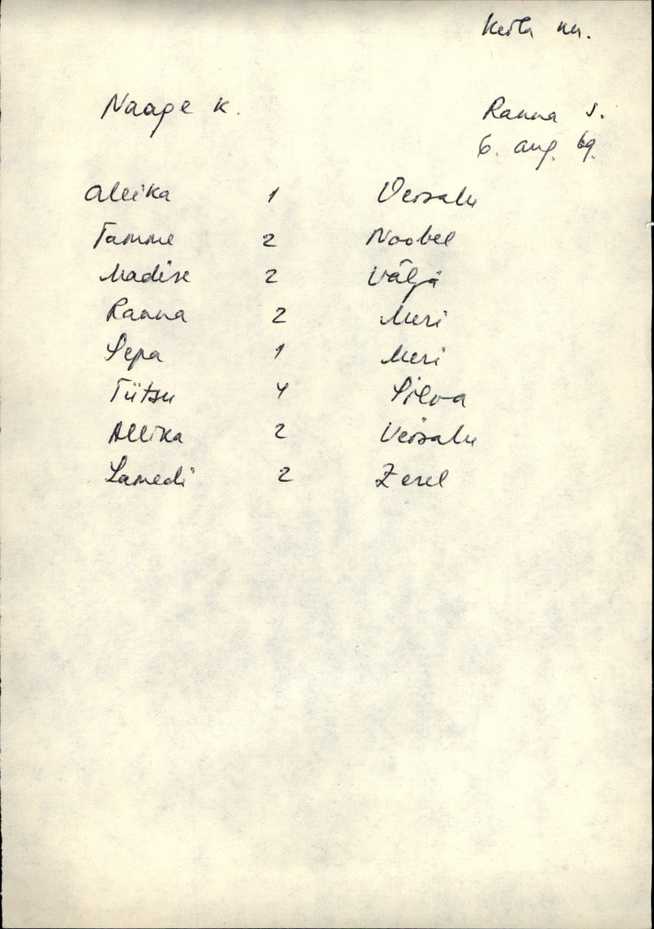 Keila kh.
Naage k. Ranna s.
6. aug. 69.
Allika 1 Versalu
Tamme 2 Noobel
Madise 2 Väljä
Ranna 2 Meri
Sepa 1 Meri
Tiitsu 4 Silva
Allika 2 Versalu
Lamedi 2 Zerel